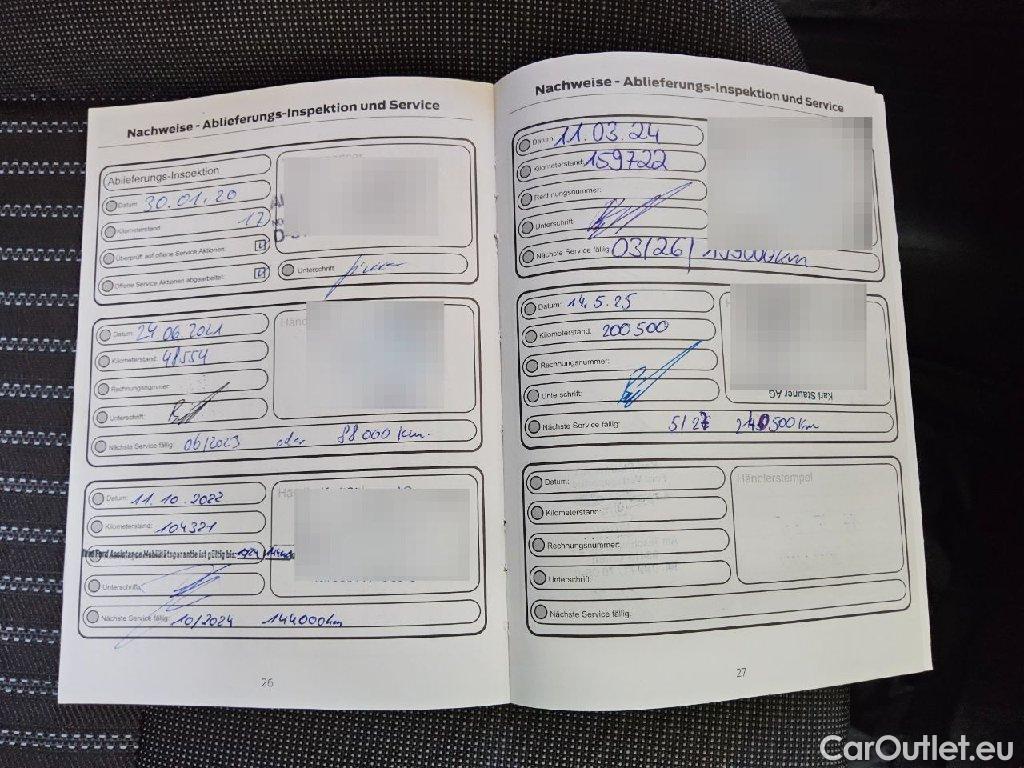 Nachweise - Ablieferungs-Inspektion und Service
Ablieferungs-Inspektion
Datum: 30.01.20
Kilometerstand: 12
Überprüft auf offene Service Aktionen:
Offene Service Aktionen abgearbeitet:
Unterschrift
Datum: 24.06.2021
Kilometerstand: 48554
Rechnungsnummer:
Unterschrift:
Nächste Service fällig: 06/2023 oder 88000 km.
Datum: 11.10.2022
Kilometerstand: 104321
Ford Assistance Mobilitätsgarantie ist gültig bis:
Unterschrift:
Nächste Service fällig: 10/2024 144000km
26
Nachweise - Ablieferungs-Inspektion und Service
Datum: 11.03.24
Kilometerstand: 159722
Rechnungsnummer:
Unterschrift:
Nächste Service fällig: 03/26/
Datum: 14.5.25
Kilometerstand: 200500
Rechnungsnummer:
Unterschrift:
Karl Stauner AG
Nächste Service fällig: 5/27 240500km
Datum:
Kilometerstand:
Rechnungsnummer:
Unterschrift:
Händlerstempel
Nächste Service fällig:
27
CarOutlet.eu